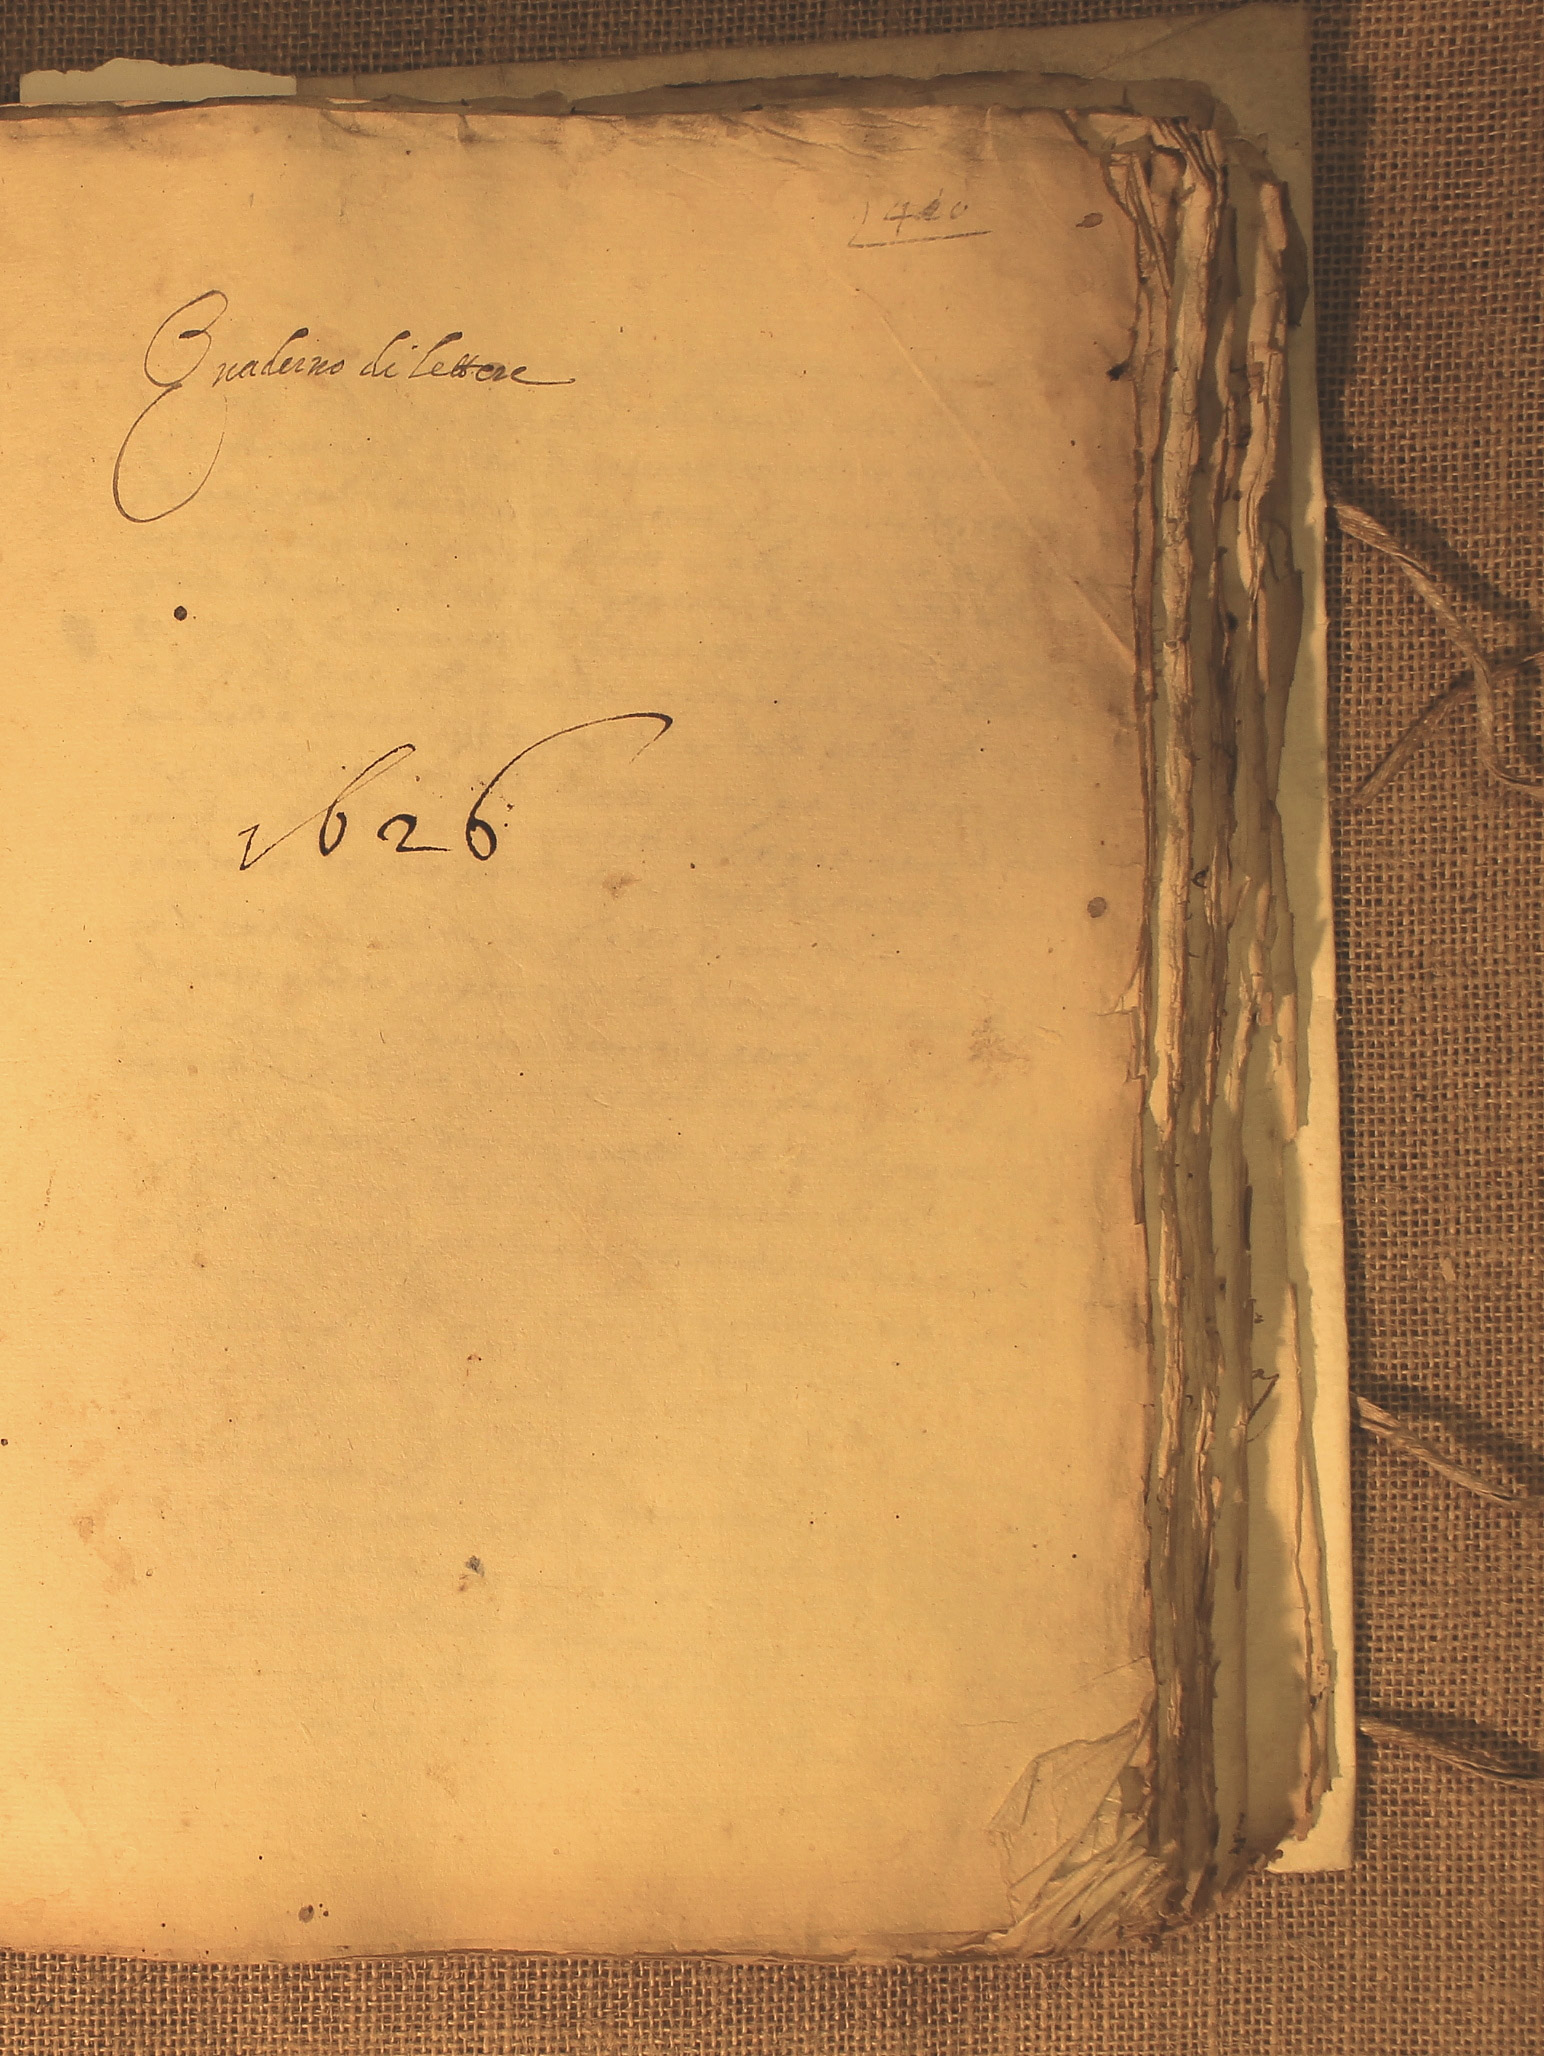 Quaderno di lettere
1626